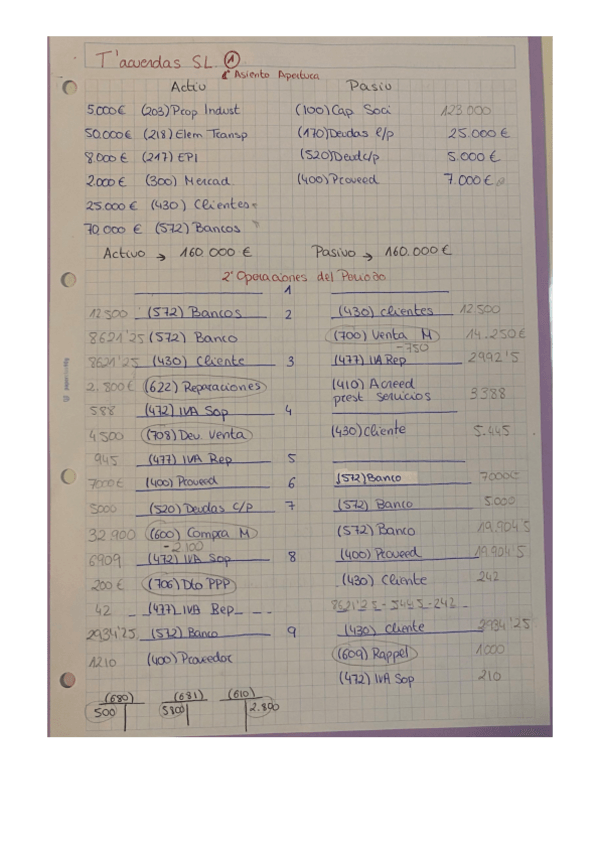 T'acuerdas SL. ①
Asiento Apertura
Activ Pasivo
5.000€ (203) Prop Indust (100) Cap Soci 123.000
50.000€ (218) Elem Transp (170) Deudas l/p 25.000 €
8.000 € (217) EPI (520) Deud c/p 5.000 €
2.000 € (300) Mercad. (400) Proveed 7.000 €
25.000 € (430) Clientes
70.000 € (572) Bancos
Activo → 160.000 € Pasivo → 160.000 €
2º Operaciones del Periodo
1
12.500 (572) Bancos 2 (430) clientes 12.500
8621'25 (572) Banco (700) Venta M 14.250€
-750
8621'25 (430) Cliente 3 (477) IVA Rep 2992'5
2.800€ (622) Reparaciones (410) Acreed prest servicios 3388
588 (472) IVA Sop 4
4.500 (708) Dev. Venta (430) Cliente 5.445
945 (477) IVA Rep 5
7000€ (400) Proveed 6 (572) Banco 7000€
5000 (520) Deudas C/P 7 (572) Banco 5.000
32.900 (600) Compra M (572) Banco 19.904'5
-2.100
6909 (472) IVA Sop 8 (400) Proveed 19.904'5
200€ (706) Dto PPP (430) Cliente 242
42 (477) IVA Rep 8621'25-5445-242
2934'25 (572) Banco 9 (430) Cliente 2934'25
1210 (400) Proveedor (609) Rappel 1000
(472) IVA Sop 210
(680) (681) (610)
500 5800 2.800